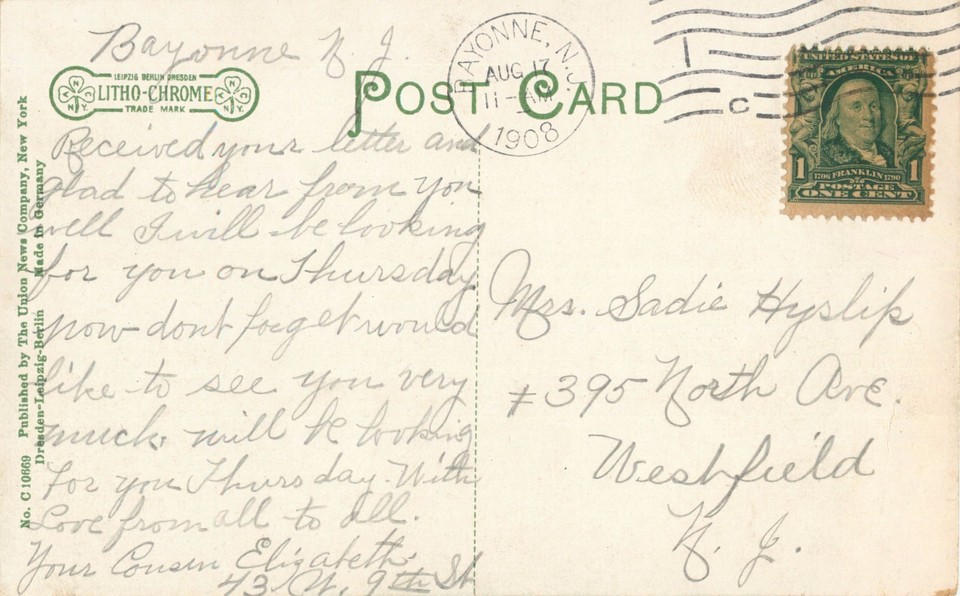 Bayonne N. J.
LEIPZIG BERLIN DRESDEN
LITHO-CHROME
TRADE MARK
N Y
N Y
POST CARD
BAYONNE, N.J.
AUG 17
11-AM
1908
C
UNITED STATES OF
AMERICA
1 1
1706 FRANKLIN 1790
POSTAGE
ONE CENT
No. C 10669 Published by The Union News Company, New York
Dresden-Leipzig-Berlin Made in Germany
Received your letter and
glad to hear from you
well I will be looking
for you on Thursday
now dont forget would
like to see you very
much. will be looking
For you Thursday. With
Love from all to all.
Your Cousin Elizabeth
43 W. 9th St
Mrs. Sadie Hyslip
# 395 North Ave.
Westfield
N. J.